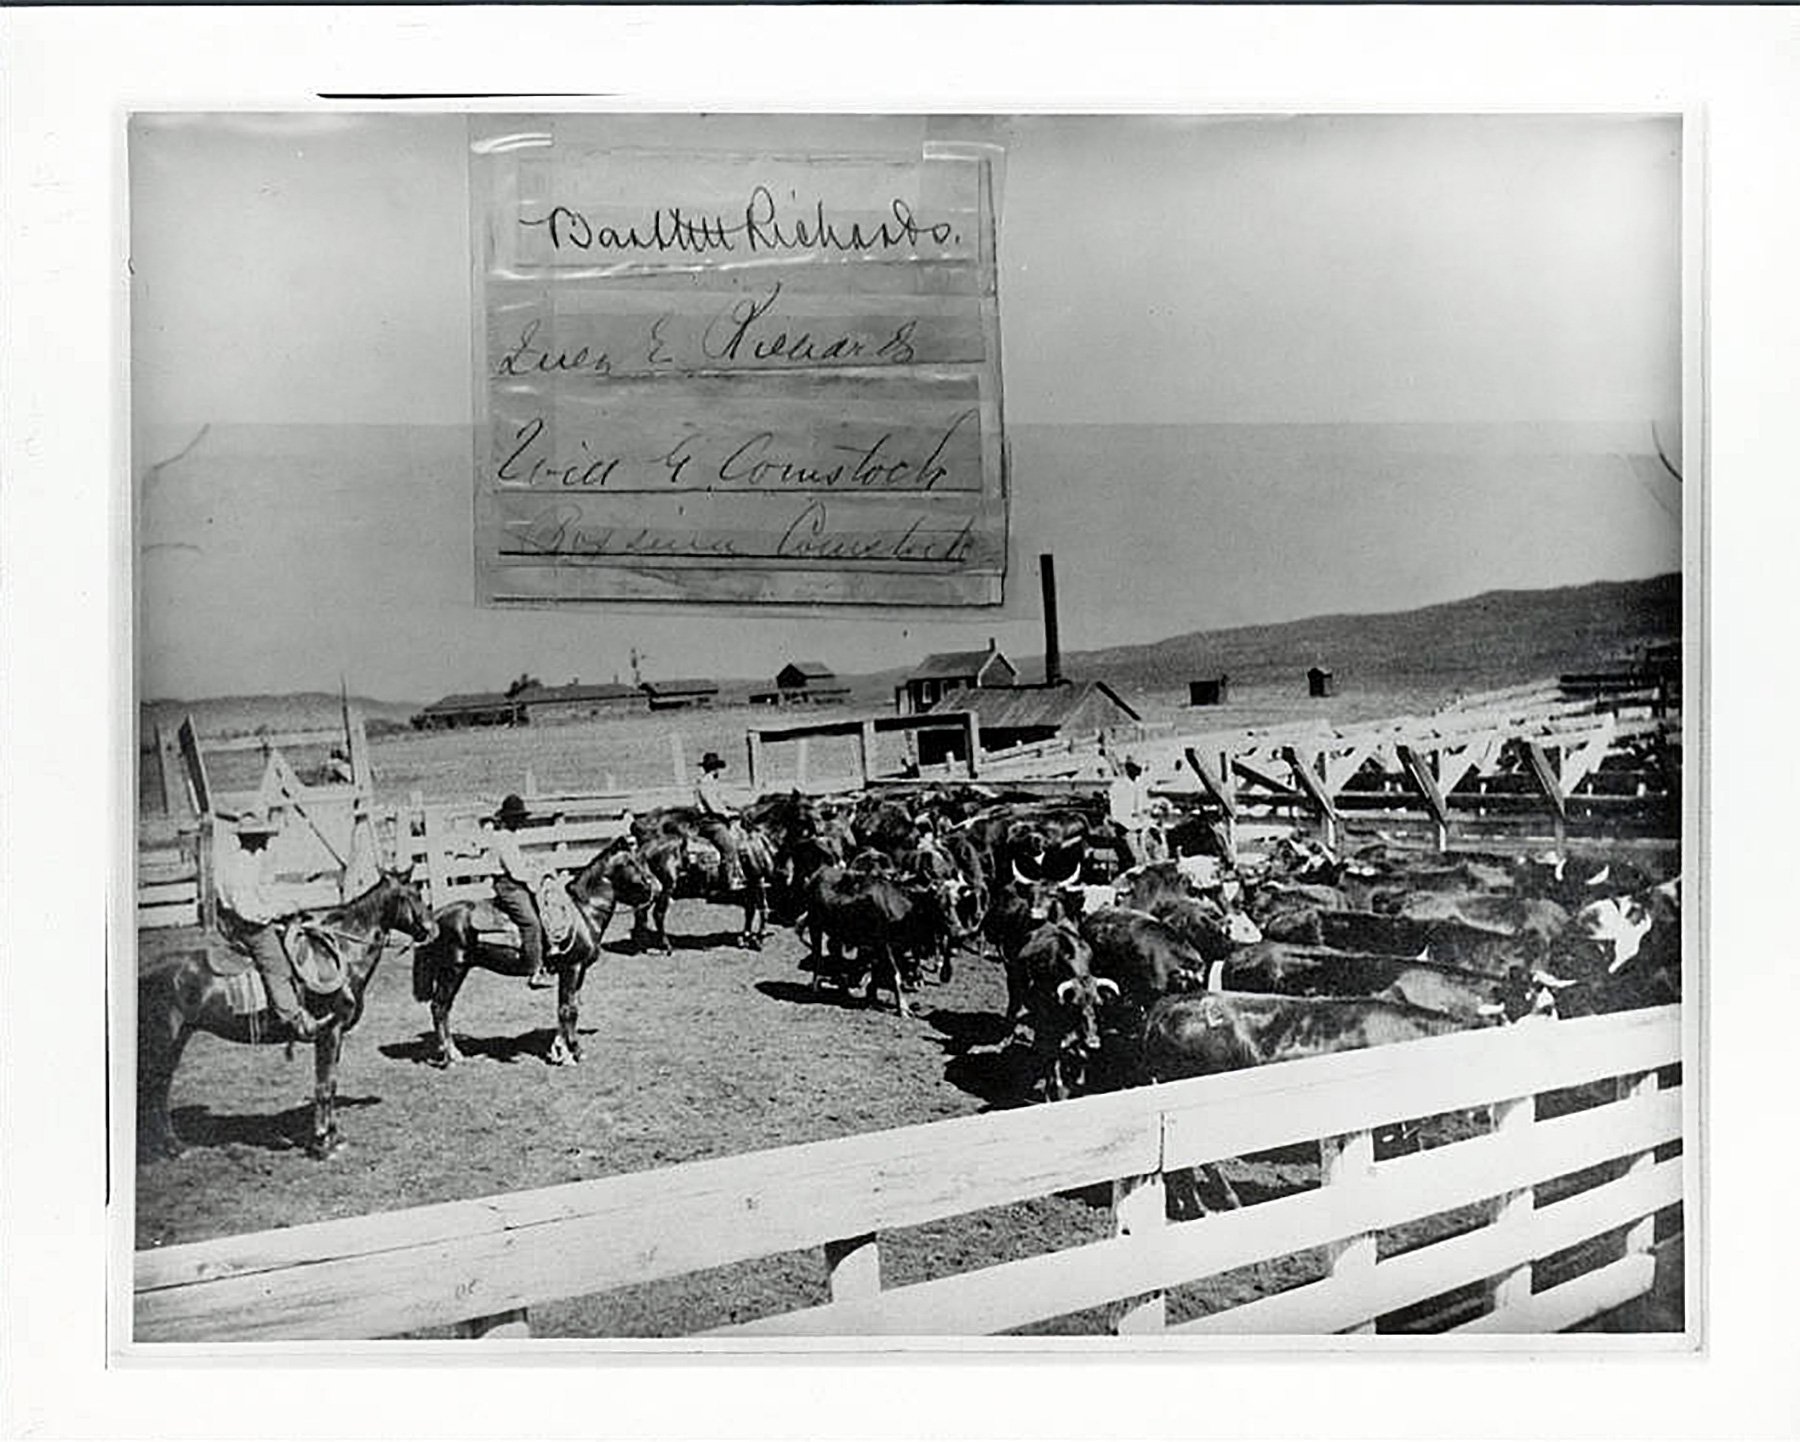 Bartlett Richards.
E Richards
Will G Comstock
Comstock